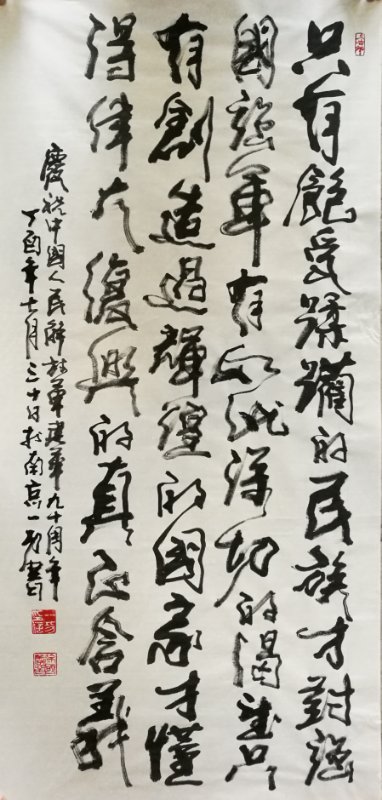 只有飽受蹂躪的民族才對強
國強軍有如此深切的渴望只
有創造過輝煌的國家才懂
得偉大復興的真正含義
慶祝中國人民解放軍建軍九十周年
丁酉年七月三十日於南京一書